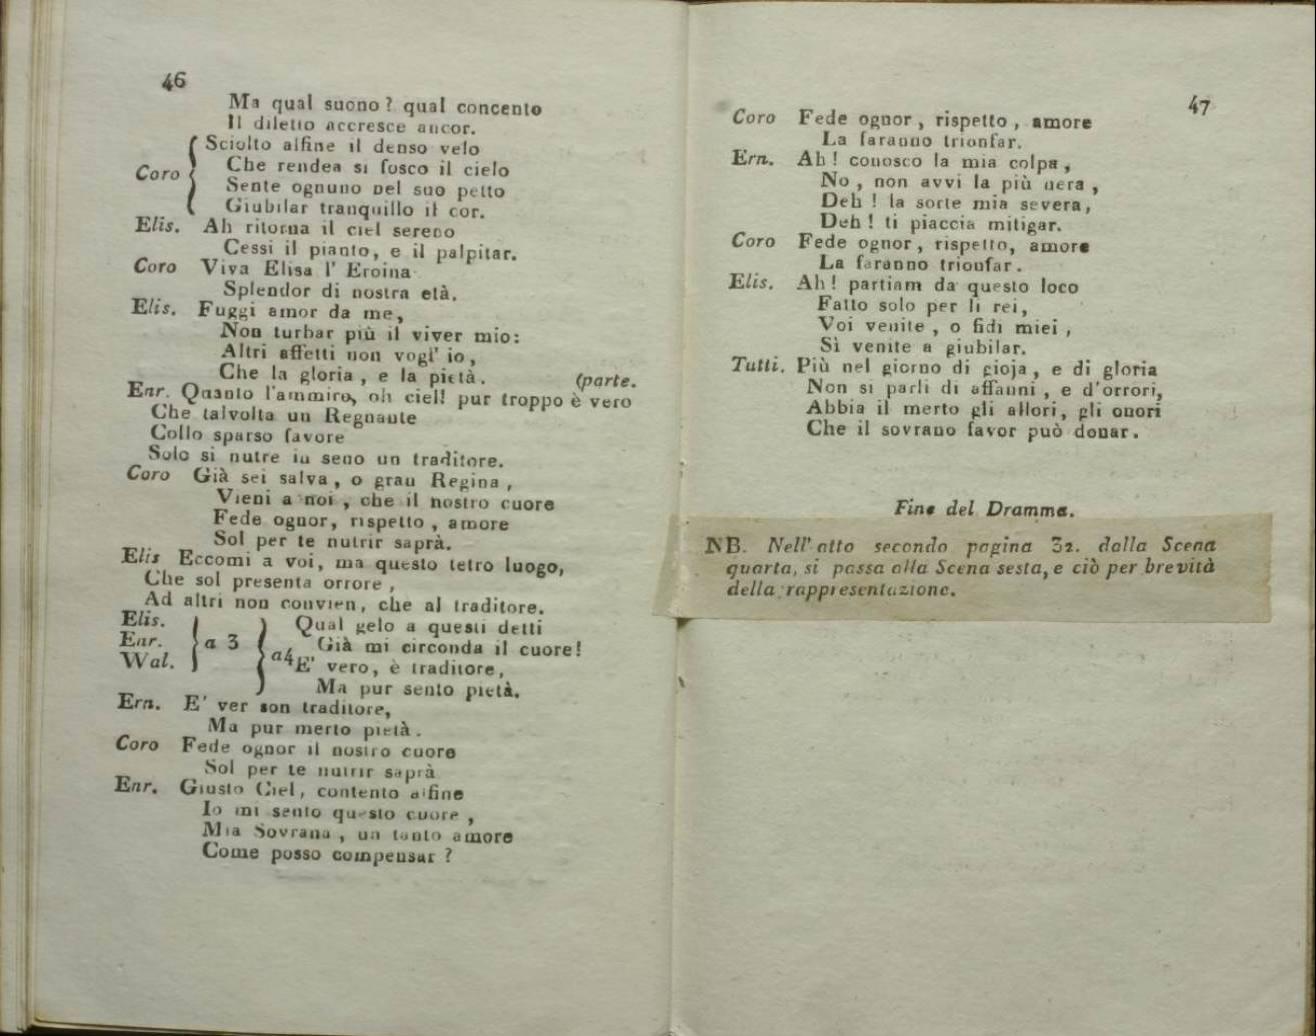 46
Ma qual suono ? qual concento
Il diletto accresce ancor.
Sciolto alfine il denso velo
Coro Che rendea si fosco il cielo
Sente ognuno nel suo petto
Giubilar tranquillo il cor.
Elis. Ah ritorna il ciel sereno
Cessi il pianto, e il palpitar.
Coro Viva Elisa l' Eroina
Splendor di nostra età.
Elis. Fuggi amor da me,
Non turbar più il viver mio:
Altri affetti non vogl' io,
Che la gloria, e la pietà. (parte.
Enr. Quanto l'ammiro, oh ciel! pur troppo è vero
Che talvolta un Regnante
Collo sparso favore
Solo si nutre in seno un traditore.
Coro Già sei salva, o gran Regina,
Vieni a noi, che il nostro cuore
Fede ognor, rispetto, amore
Sol per te nutrir saprà.
Elis Eccomi a voi, ma questo tetro luogo,
Che sol presenta orrore,
Ad altri non convien, che al traditore.
Elis.
Enr.
Wal.
a 3
a4
Qual gelo a questi detti
Già mi circonda il cuore!
E' vero, è traditore,
Ma pur sento pietà.
Ern. E' ver son traditore,
Ma pur merto pietà.
Coro Fede ognor il nostro cuore
Sol per te nutrir saprà
Enr. Giusto Ciel, contento alfine
Io mi sento questo cuore,
Mia Sovrana, un tanto amore
Come posso compensar ?
47
Coro Fede ognor, rispetto, amore
La faranno trionfar.
Ern. Ah! conosco la mia colpa,
No, non avvi la più nera,
Deh ! la sorte mia severa,
Deh ! ti piaccia mitigar.
Coro Fede ognor, rispetto, amore
La faranno trionfar.
Elis. Ah! partiam da questo loco
Fatto solo per li rei,
Voi venite, o fidi miei,
Sì venite a giubilar.
Tutti. Più nel giorno di gioja, e di gloria
Non si parli di affanni, e d'orrori,
Abbia il merto gli allori, gli onori
Che il sovrano favor può donar.
Fine del Dramma.
NB. Nell' atto secondo pagina 32. dalla Scena
quarta, si passa alla Scena sesta, e ciò per brevità
della rappresentazione.